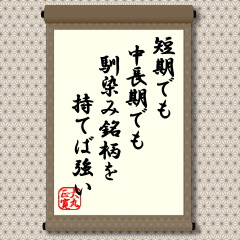 短期でも
中長期でも
馴染み銘柄を
持てば強い